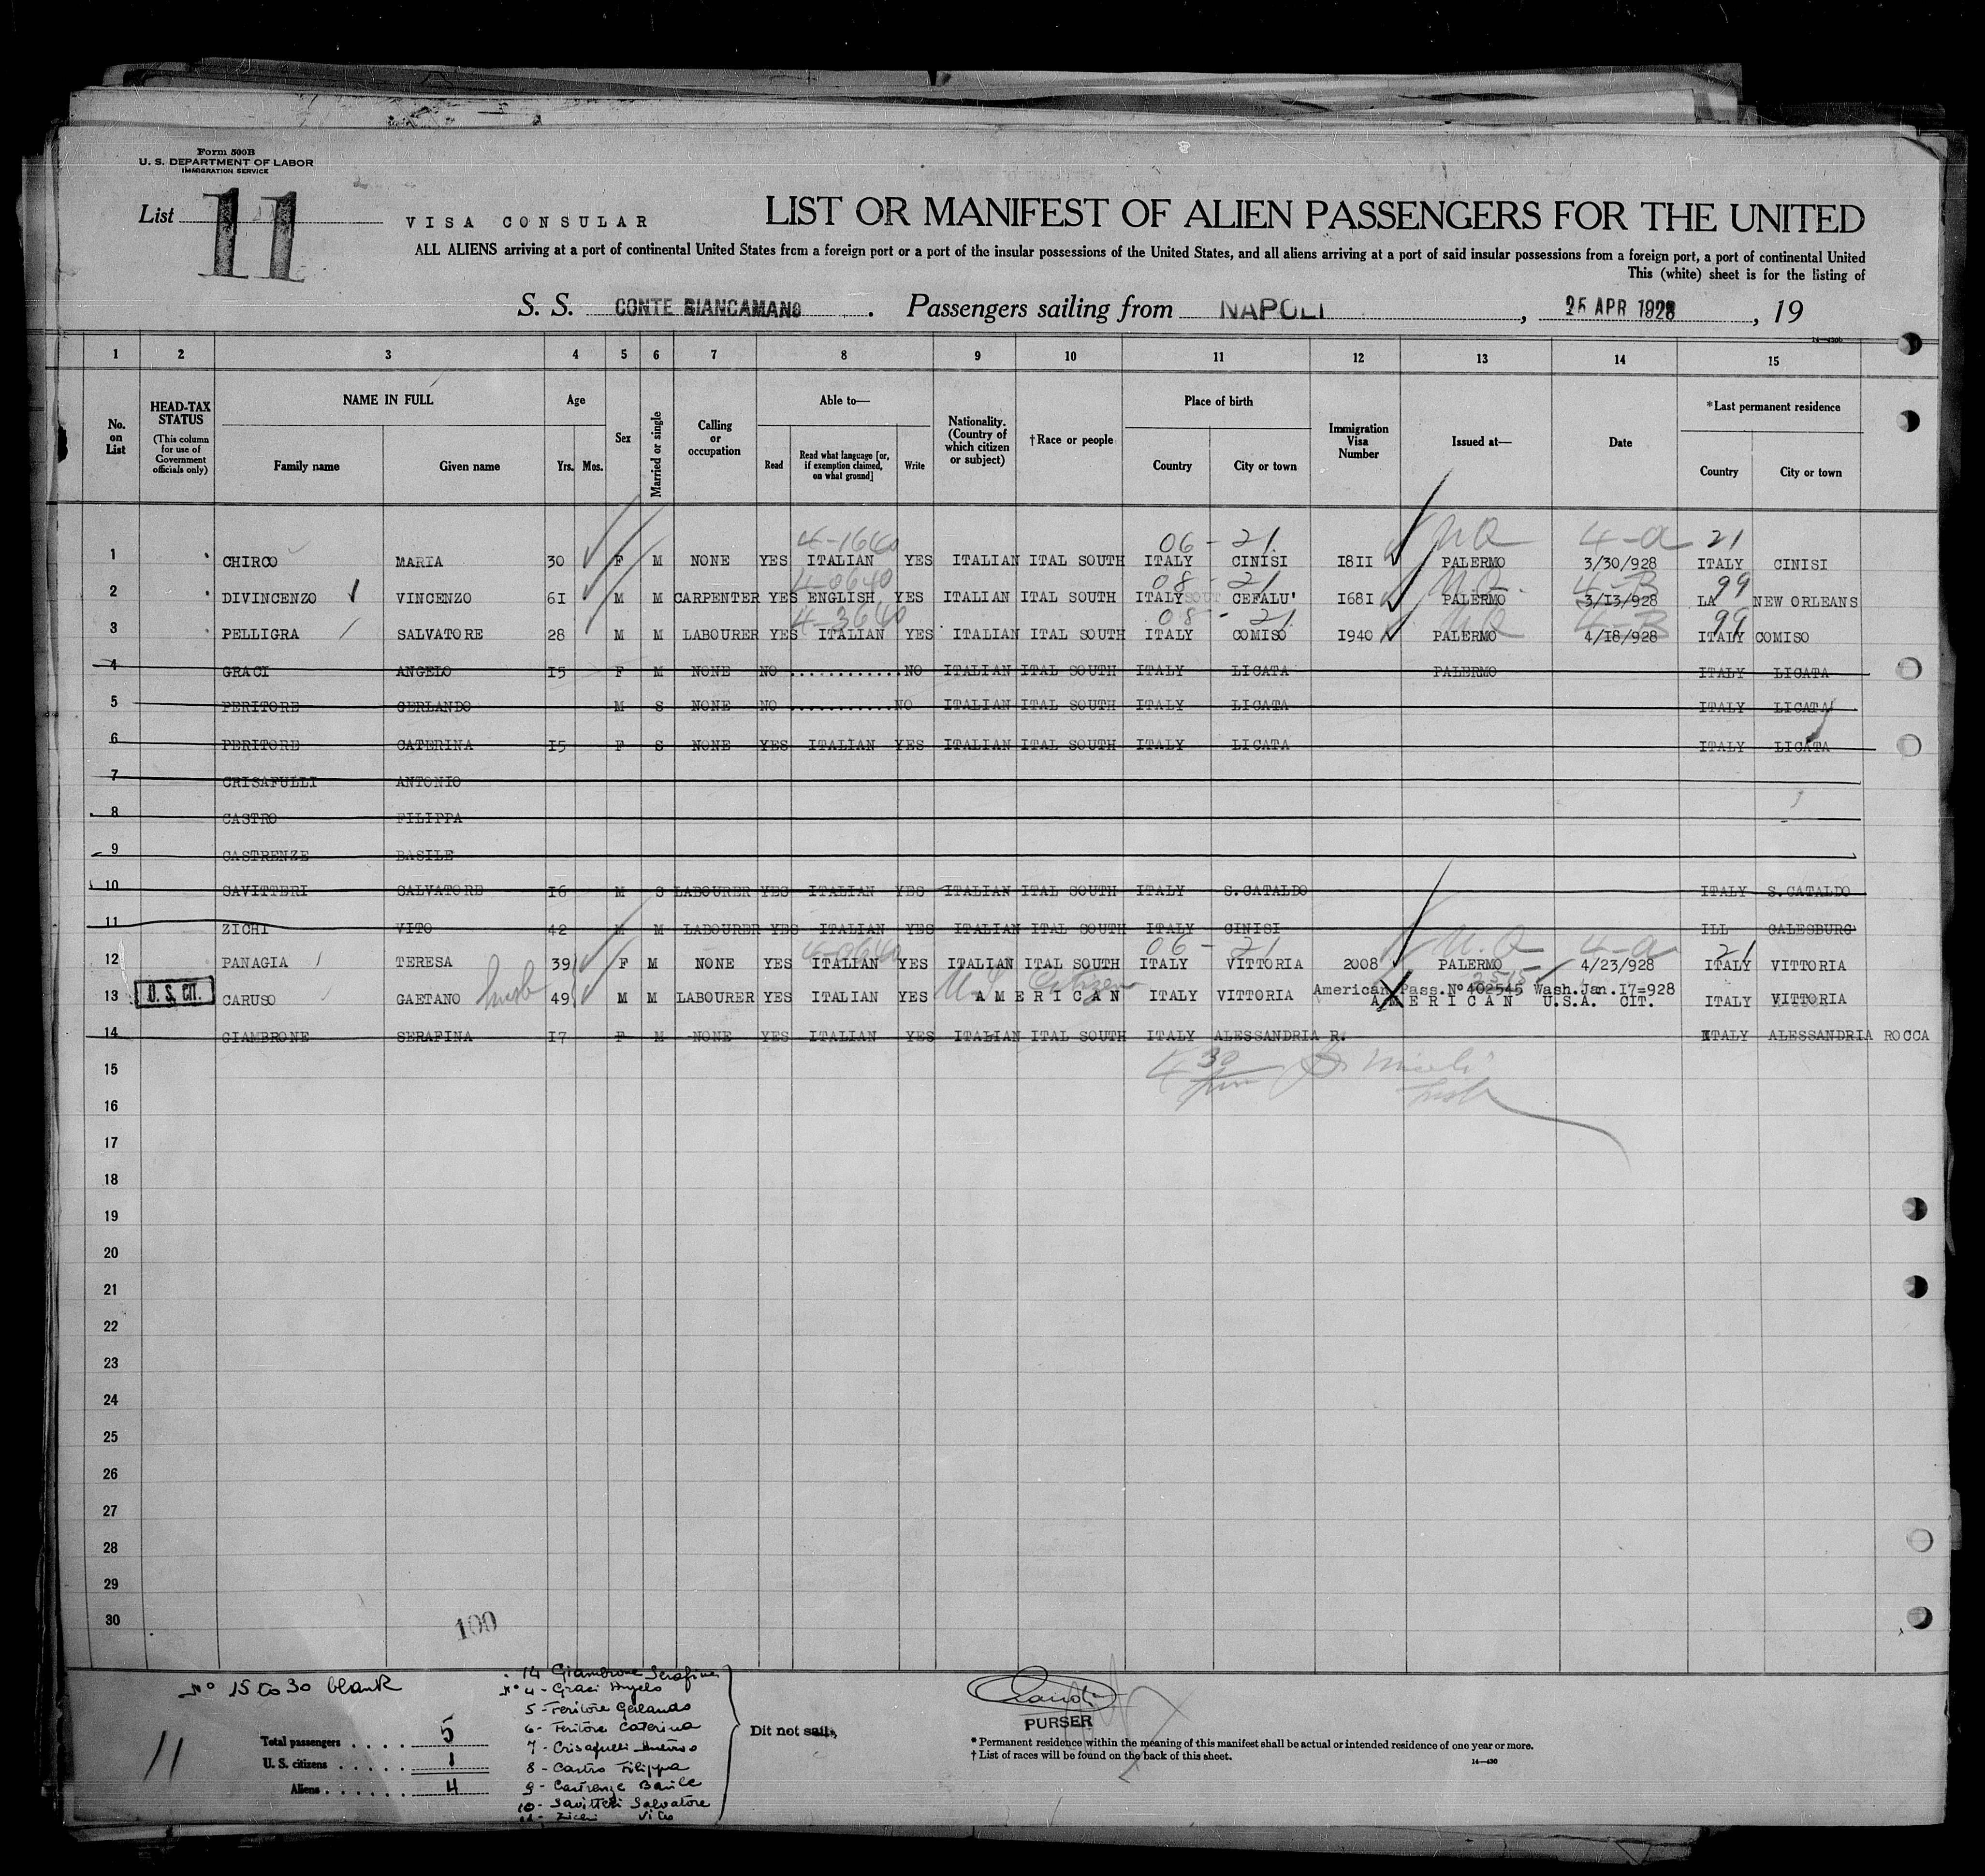 Form 500B
U. S. DEPARTMENT OF LABOR
IMMIGRATION SERVICE
List 11
VISA CONSULAR
LIST OR MANIFEST OF ALIEN PASSENGERS FOR THE UNITED
ALL ALIENS arriving at a port of continental United States from a foreign port or a port of the insular possessions of the United States, and all aliens arriving at a port of said insular possessions from a foreign port, a port of continental United
This (white) sheet is for the listing of
S. S. CONTE BIANCAMANO . Passengers sailing from NAPOLI , 26 APR 1928 , 19
1 2 3 4 5 6 7 8 9 10 11 12 13 14 15
No. on List
HEAD-TAX STATUS
(This column for use of Government officials only)
NAME IN FULL
Family name Given name
Age
Yrs. Mos.
Sex
Married or single
Calling or occupation
Able to—
Read
Read what language [or, if exemption claimed, on what ground]
Write
Nationality. (Country of which citizen or subject)
†Race or people
Place of birth
Country City or town
Immigration Visa Number
Issued at—
Date
*Last permanent residence
Country City or town
4-1640 06 - 21 NQ 4-a 21
1 CHIRCO MARIA 30 F M NONE YES ITALIAN YES ITALIAN ITAL SOUTH ITALY CINISI I8II PALERMO 3/30/928 ITALY CINISI
4-0640 08 - 21 N.Q. 4-B 99
2 DIVINCENZO VINCENZO 6I M M CARPENTER YES ENGLISH YES ITALIAN ITAL SOUTH ITALY CEFALU' I68I PALERMO 3/I3/928 LA NEW ORLEANS
4-3640 08 - 21 NQ 4-B 99
3 PELLIGRA SALVATORE 28 M M LABOURER YES ITALIAN YES ITALIAN ITAL SOUTH ITALY COMISO I940 PALERMO 4/I8/928 ITALY COMISO
4 GRACI ANGELO I5 F M NONE NO ............ NO ITALIAN ITAL SOUTH ITALY LICATA PALERMO ITALY LICATA
5 PERITORE GERLANDO M S NONE NO ........... NO ITALIAN ITAL SOUTH ITALY LICATA ITALY LICATA
6 PERITORE CATERINA I5 F S NONE YES ITALIAN YES ITALIAN ITAL SOUTH ITALY LICATA ITALY LICATA
7 CRISAFULLI ANTONIO
8 CASTRO FILIPPA
9 CASTRENZE BASILE
10 SAVITTERI SALVATORE I6 M S LABOURER YES ITALIAN YES ITALIAN ITAL SOUTH ITALY S.CATALDO ITALY S.CATALDO
11 ZICHI VITO 42 M M LABOURER YES ITALIAN YES ITALIAN ITAL SOUTH ITALY CINISI ILL GALESBURG
4-0640 06 - 21 N.Q 4-a 21
12 PANAGIA TERESA 39 F M NONE YES ITALIAN YES ITALIAN ITAL SOUTH ITALY VITTORIA 2008 PALERMO 4/23/928 ITALY VITTORIA
U.S. Citizen 2515
American Pass.Nº 402545 Wash.Jan.I7=928
13 U.S. CIT. CARUSO GAETANO husb 49 M M LABOURER YES ITALIAN YES AMERICAN ITALY VITTORIA AMERICAN U.S.A. CIT. ITALY VITTORIA
14 GIAMBRONE SERAFINA I7 F M NONE YES ITALIAN YES ITALIAN ITAL SOUTH ITALY ALESSANDRIA R. ITALY ALESSANDRIA ROCCA
15
16
17
18
19
20
21
22
23
24
25
26
27
28
29
30
100
Nº 15 to 30 blank
11
Total passengers . . . . 5
U. S. citizens . . . . . 1
Aliens . . . . . . 4
14 Giambrone Serafina
Nº 4 - Graci Angelo
5 - Peritore Gerlando
6 - Peritore Caterina
7 - Crisafulli Antonio
8 - Castro Filippa
9 - Castrenze Basile
10 - Savitteri Salvatore
11 - Zichi Vito
Dit not sail.
PURSER
* Permanent residence within the meaning of this manifest shall be actual or intended residence of one year or more.
† List of races will be found on the back of this sheet.
14—430